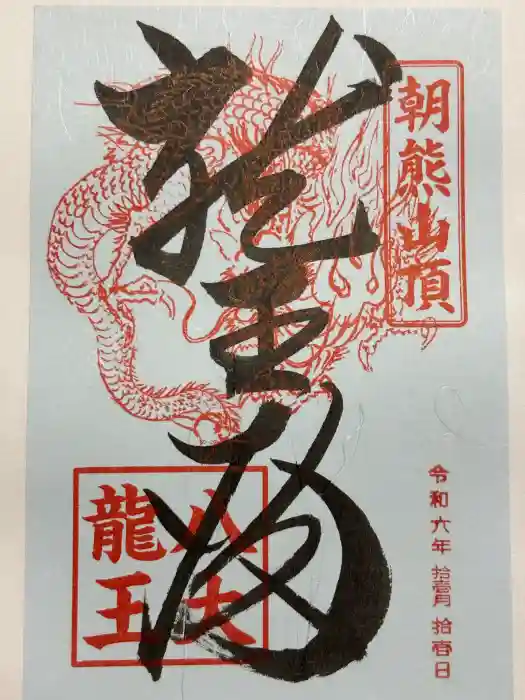 朝熊山頂
龍王殿
八大
龍王
令和六年 拾壹月 拾壹日